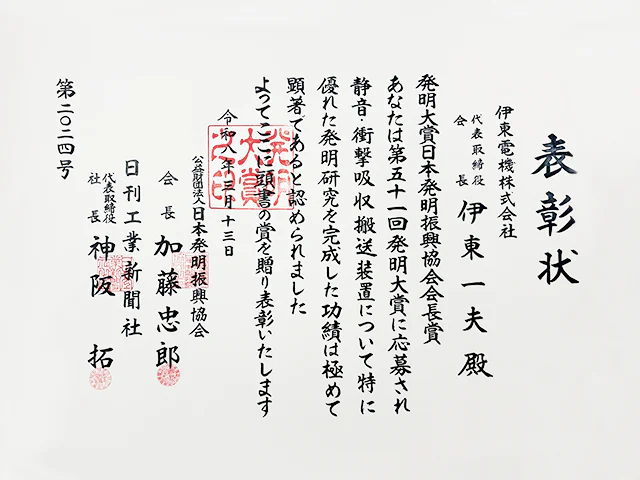 表彰状
伊東電機株式会社
代表取締役
会長
伊東一夫殿
発明大賞日本発明振興協会会長賞
あなたは第五十一回発明大賞に応募され
静音・衝撃吸収搬送装置について特に
優れた発明研究を完成した功績は極めて
顕著であると認められました
よってここに頭書の賞を贈り表彰いたします
令和八年三月十三日
公益財団法人日本発明振興協会
会長 加藤忠郎
日刊工業新聞社
代表取締役
社長
神阪拓
第二〇二四号
発明
大賞
之印